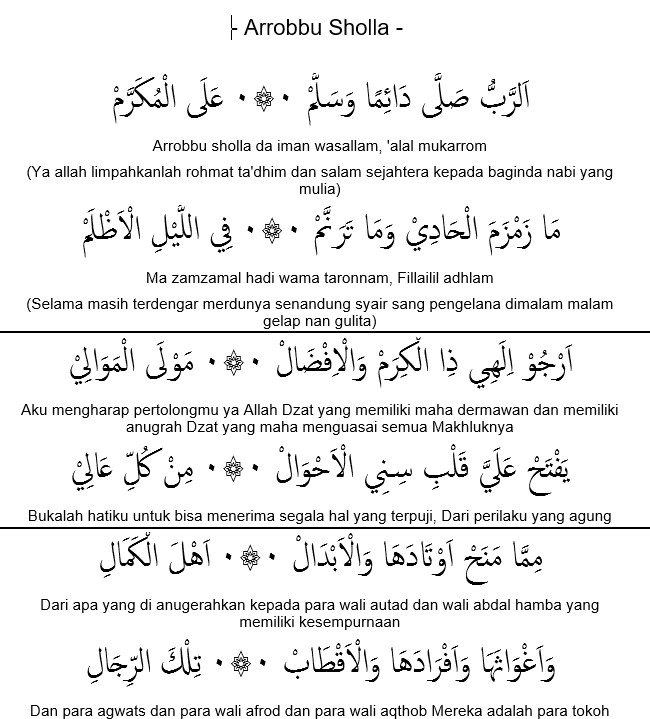 - Arrobbu Sholla -
اَلرَّبُّ صَلَّى دَائِمًا وَسَلَّمْ ۰ ۞ ۰ عَلَى الْمُكَرَّمْ
Arrobbu sholla da iman wasallam, 'alal mukarrom
(Ya allah limpahkanlah rohmat ta'dhim dan salam sejahtera kepada baginda nabi yang
mulia)
مَا زَمْزَمَ الْحَادِيْ وَمَا تَرَنَّمْ ۰ ۞ ۰ فِي اللَّيْلِ الْاَظْلَمْ
Ma zamzamal hadi wama taronnam, Fillailil adhlam
(Selama masih terdengar merdunya senandung syair sang pengelana dimalam malam
gelap nan gulita)
اَرْجُوْ اِلَهِي ذِا الْكِرَمْ وَالْاِفْضَالْ ۰ ۞ ۰ مَوْلَى الْمَوَالِيْ
Aku mengharap pertolongmu ya Allah Dzat yang memiliki maha dermawan dan memiliki
anugrah Dzat yang maha menguasai semua Makhluknya
يَفْتَحْ عَلَيَّ قَلْبِ سِنِي الْاَحْوَالْ ۰ ۞ ۰ مِنْ كُلِّ عَالِيْ
Bukalah hatiku untuk bisa menerima segala hal yang terpuji, Dari perilaku yang agung
مِمَّا مَنَحْ اَوْتَادَهَا وَالْاَبْدَالْ ۰ ۞ ۰ اَهْلَ الْكَمَالِ
Dari apa yang di anugerahkan kepada para wali autad dan wali abdal hamba yang
memiliki kesempurnaan
وَاَغْوَاثَهَا وَاَفْرَادَهَا وَالْاَقْطَابْ ۰ ۞ ۰ تِلْكَ الرِّجَالِ
Dan para agwats dan para wali afrod dan para wali aqthob Mereka adalah para tokoh